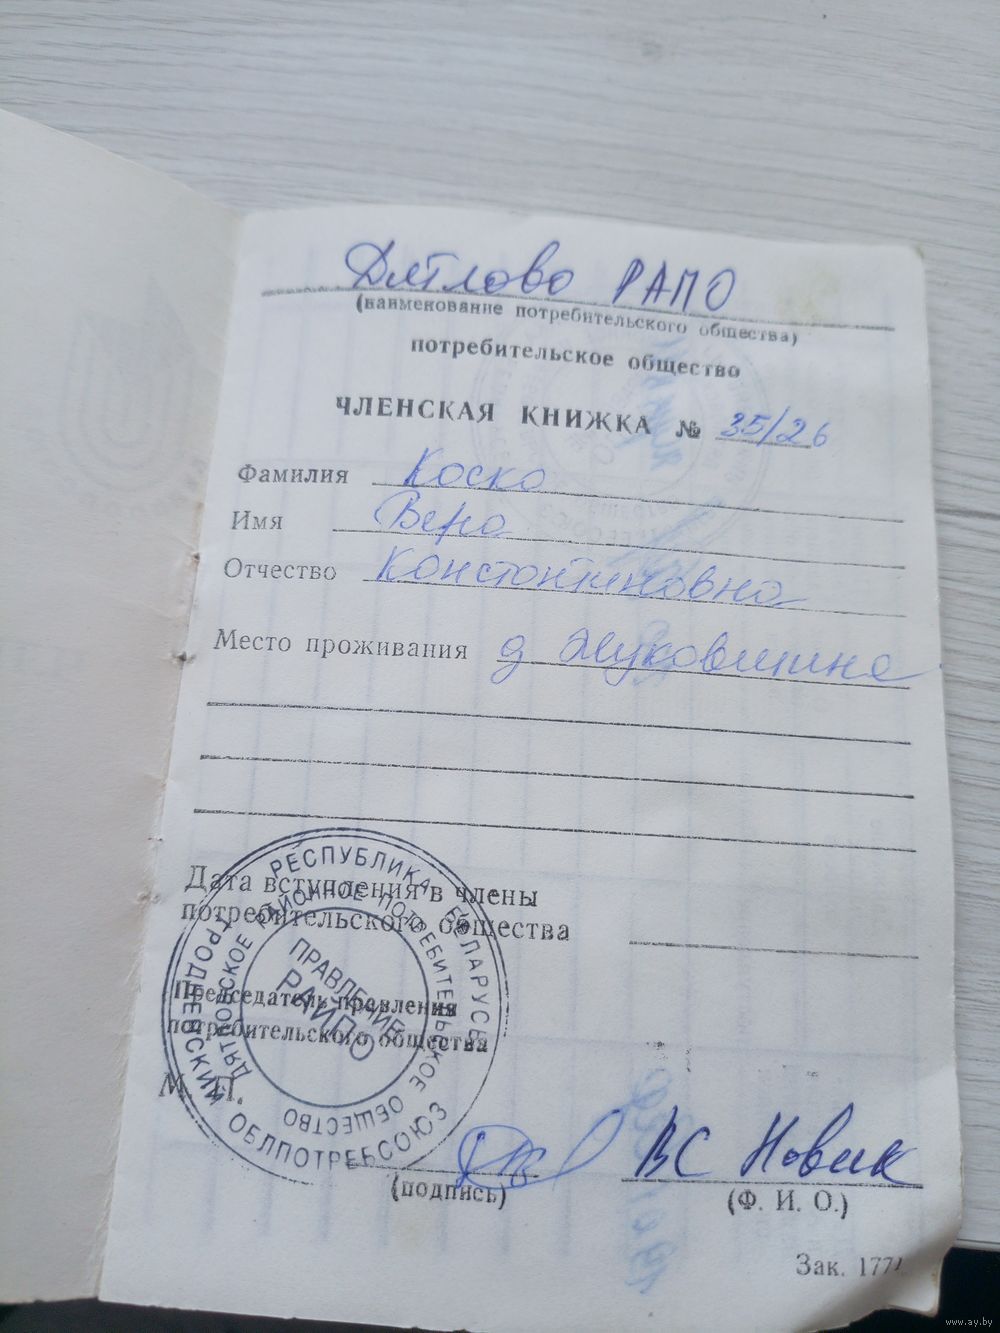 Дятлово РАПО
(наименование потребительского общества)
потребительское общество
ЧЛЕНСКАЯ КНИЖКА № 35/26
Фамилия Коско
Имя Вера
Отчество Константиновна
Место проживания д Жуковщина
Дата вступления в члены
потребительского общества
Председатель правления
потребительского общества
М. П.
РЕСПУБЛИКА БЕЛАРУСЬ
ГРОДНЕНСКИЙ ОБЛПОТРЕБСОЮЗ
ДЯТЛОВСКОЕ РАЙОННОЕ ПОТРЕБИТЕЛЬСКОЕ ОБЩЕСТВО
ПРАВЛЕНИЕ
РАЙПО
ВС Новик
(подпись) (Ф. И. О.)
Зак. 1771
www.ay.by